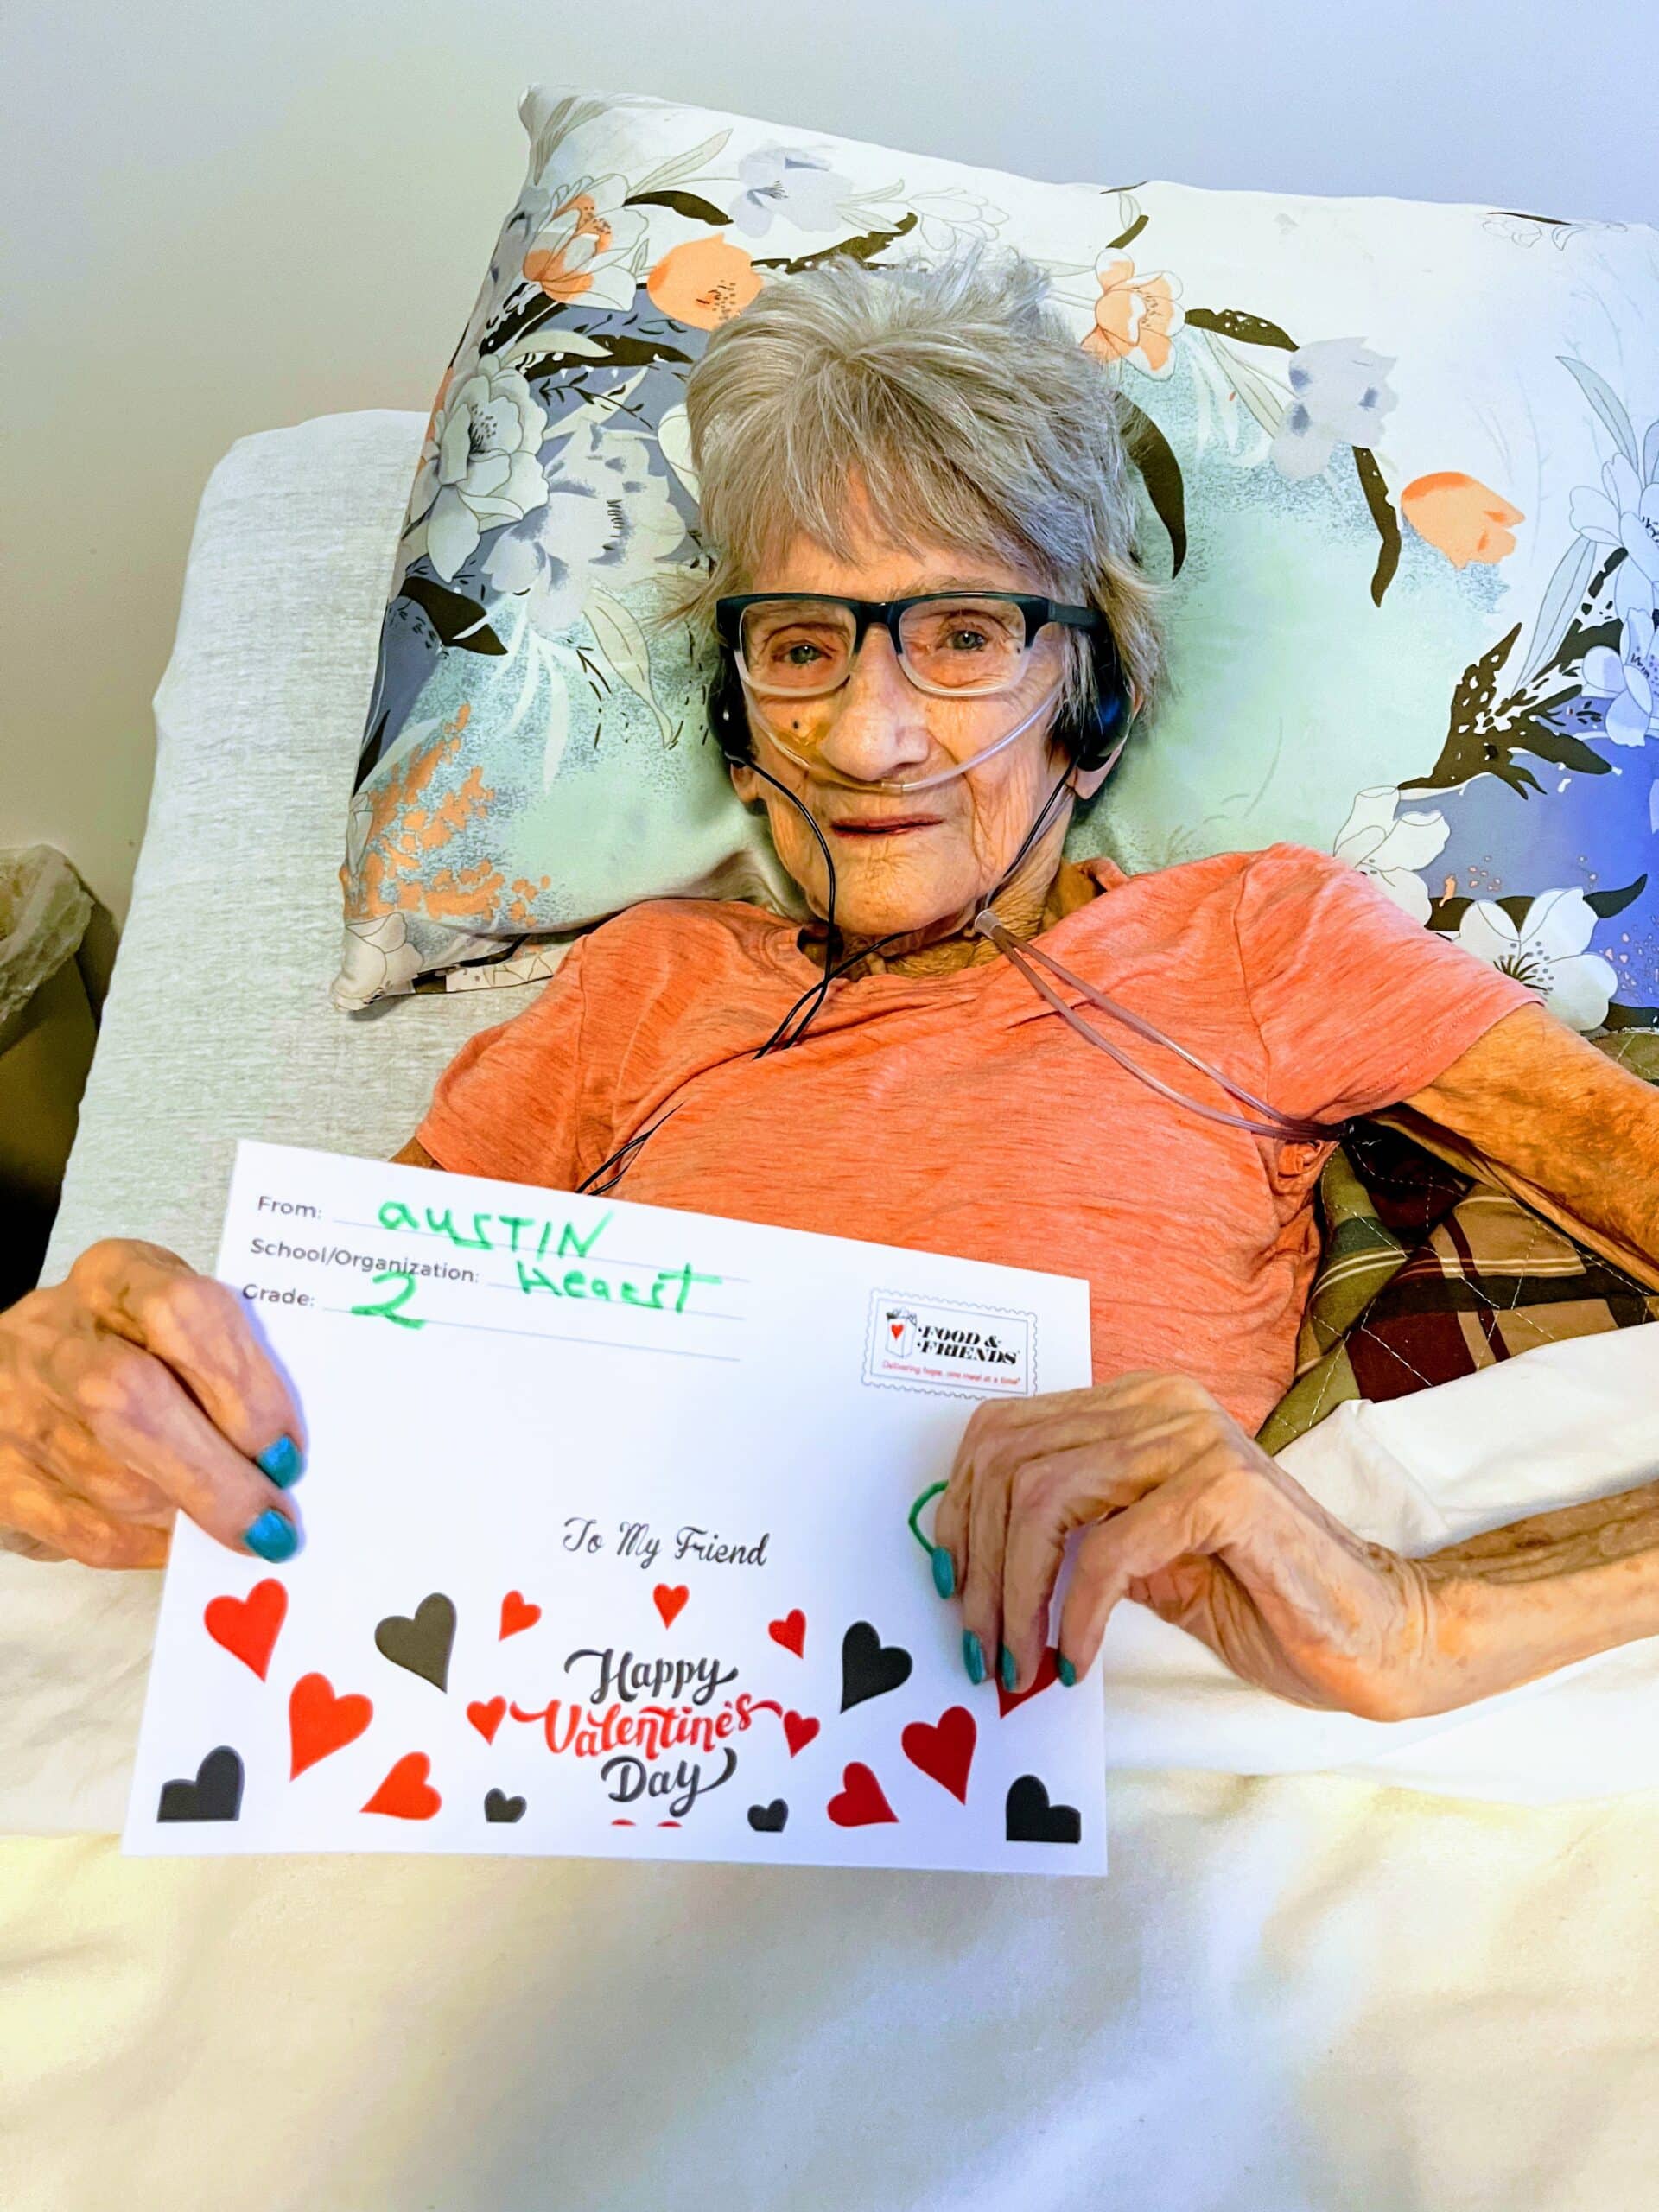 From: AUSTIN
School/Organization: Hearst
Grade: 2
FOOD &
FRIENDS
Delivering hope, one meal at a time®
To My Friend
Happy
Valentine's
Day